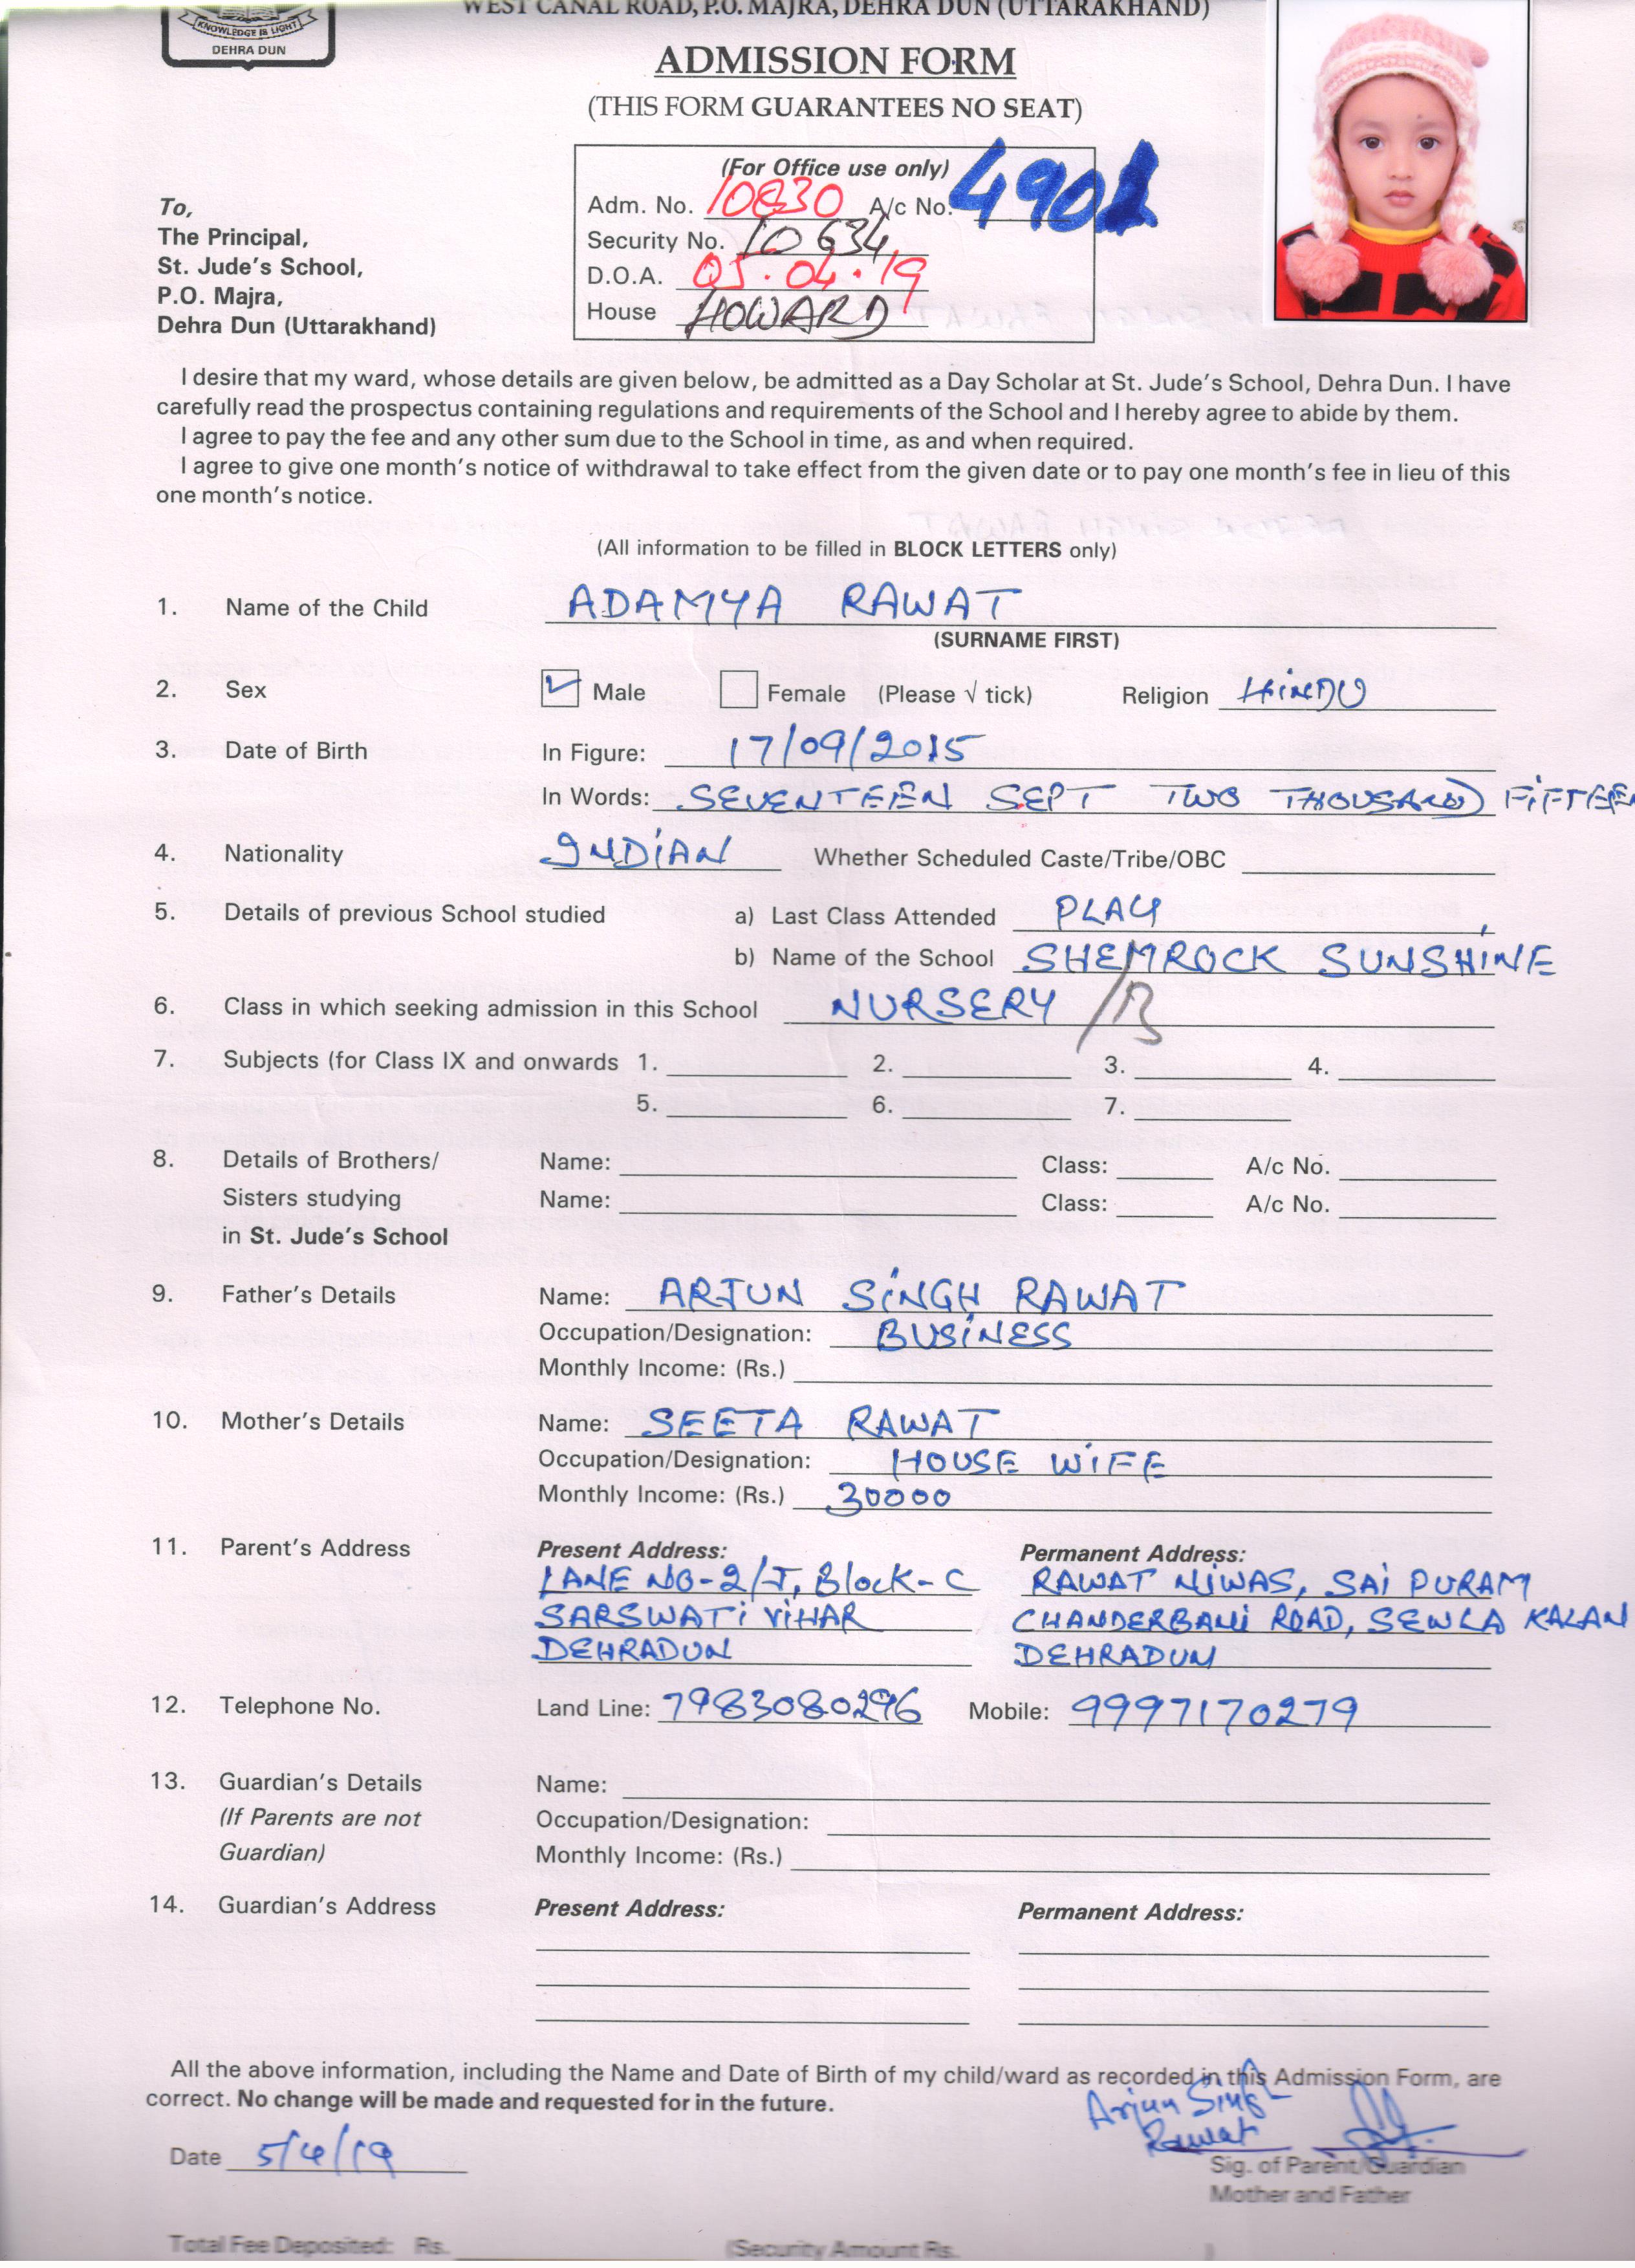 WEST CANAL ROAD, P.O. MAJRA, DEHRA DUN (UTTARAKHAND)
KNOWLEDGE IS LIGHT
DEHRA DUN
ADMISSION FORM
(THIS FORM GUARANTEES NO SEAT)
(For Office use only)
Adm. No. 10830 A/c No. 4901
Security No. 10634
D.O.A. 05.04.19
House HOWARD
To,
The Principal,
St. Jude's School,
P.O. Majra,
Dehra Dun (Uttarakhand)
I desire that my ward, whose details are given below, be admitted as a Day Scholar at St. Jude's School, Dehra Dun. I have
carefully read the prospectus containing regulations and requirements of the School and I hereby agree to abide by them.
I agree to pay the fee and any other sum due to the School in time, as and when required.
I agree to give one month's notice of withdrawal to take effect from the given date or to pay one month's fee in lieu of this
one month's notice.
(All information to be filled in BLOCK LETTERS only)
1. Name of the Child ADAMYA RAWAT
(SURNAME FIRST)
2. Sex Male Female (Please √ tick) Religion HINDU
3. Date of Birth In Figure: 17/09/2015
In Words: SEVENTEEN SEPT TWO THOUSAND FIFTEEN
4. Nationality INDIAN Whether Scheduled Caste/Tribe/OBC
5. Details of previous School studied a) Last Class Attended PLAY
b) Name of the School SHEMROCK SUNSHINE
6. Class in which seeking admission in this School NURSERY /B
7. Subjects (for Class IX and onwards 1. 2. 3. 4.
5. 6. 7.
8. Details of Brothers/ Name: Class: A/c No.
Sisters studying Name: Class: A/c No.
in St. Jude's School
9. Father's Details Name: ARJUN SINGH RAWAT
Occupation/Designation: BUSINESS
Monthly Income: (Rs.)
10. Mother's Details Name: SEETA RAWAT
Occupation/Designation: HOUSE WIFE
Monthly Income: (Rs.) 30000
11. Parent's Address Present Address: Permanent Address:
LANE NO-2/J, Block-C RAWAT NIWAS, SAI PURAM
SARSWATI VIHAR CHANDERBANI ROAD, SEWLA KALAN
DEHRADUN DEHRADUN
12. Telephone No. Land Line: 7983080296 Mobile: 9997170279
13. Guardian's Details Name:
(If Parents are not Occupation/Designation:
Guardian) Monthly Income: (Rs.)
14. Guardian's Address Present Address: Permanent Address:
All the above information, including the Name and Date of Birth of my child/ward as recorded in this Admission Form, are
correct. No change will be made and requested for in the future.
Arjun Singh
Rawat
Date 5/4/19
Sig. of Parent/Guardian
Mother and Father
Total Fee Deposited: Rs. (Security Amount Rs. )